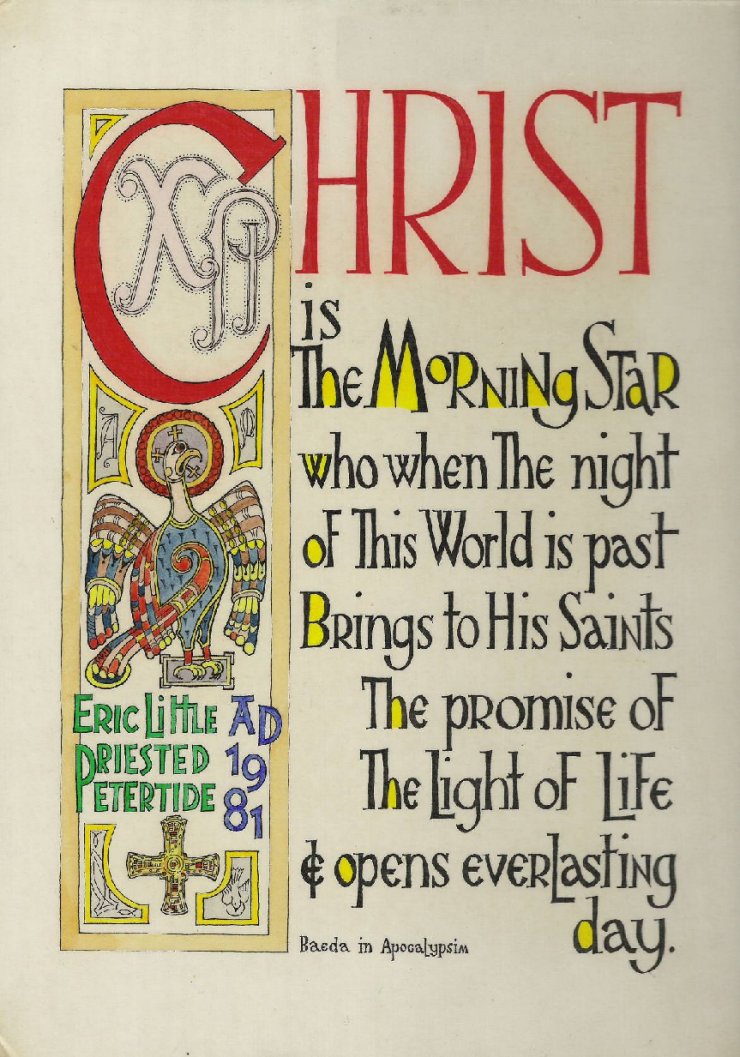 CHRIST
is
The Morning Star
who when The night
of This World is past
Brings to His Saints
The promise of
The Light of Life
& opens everlasting
day.
Baeda in Apocalypsim
XPI
A
Eric Little AD
Priested 19
Petertide 81